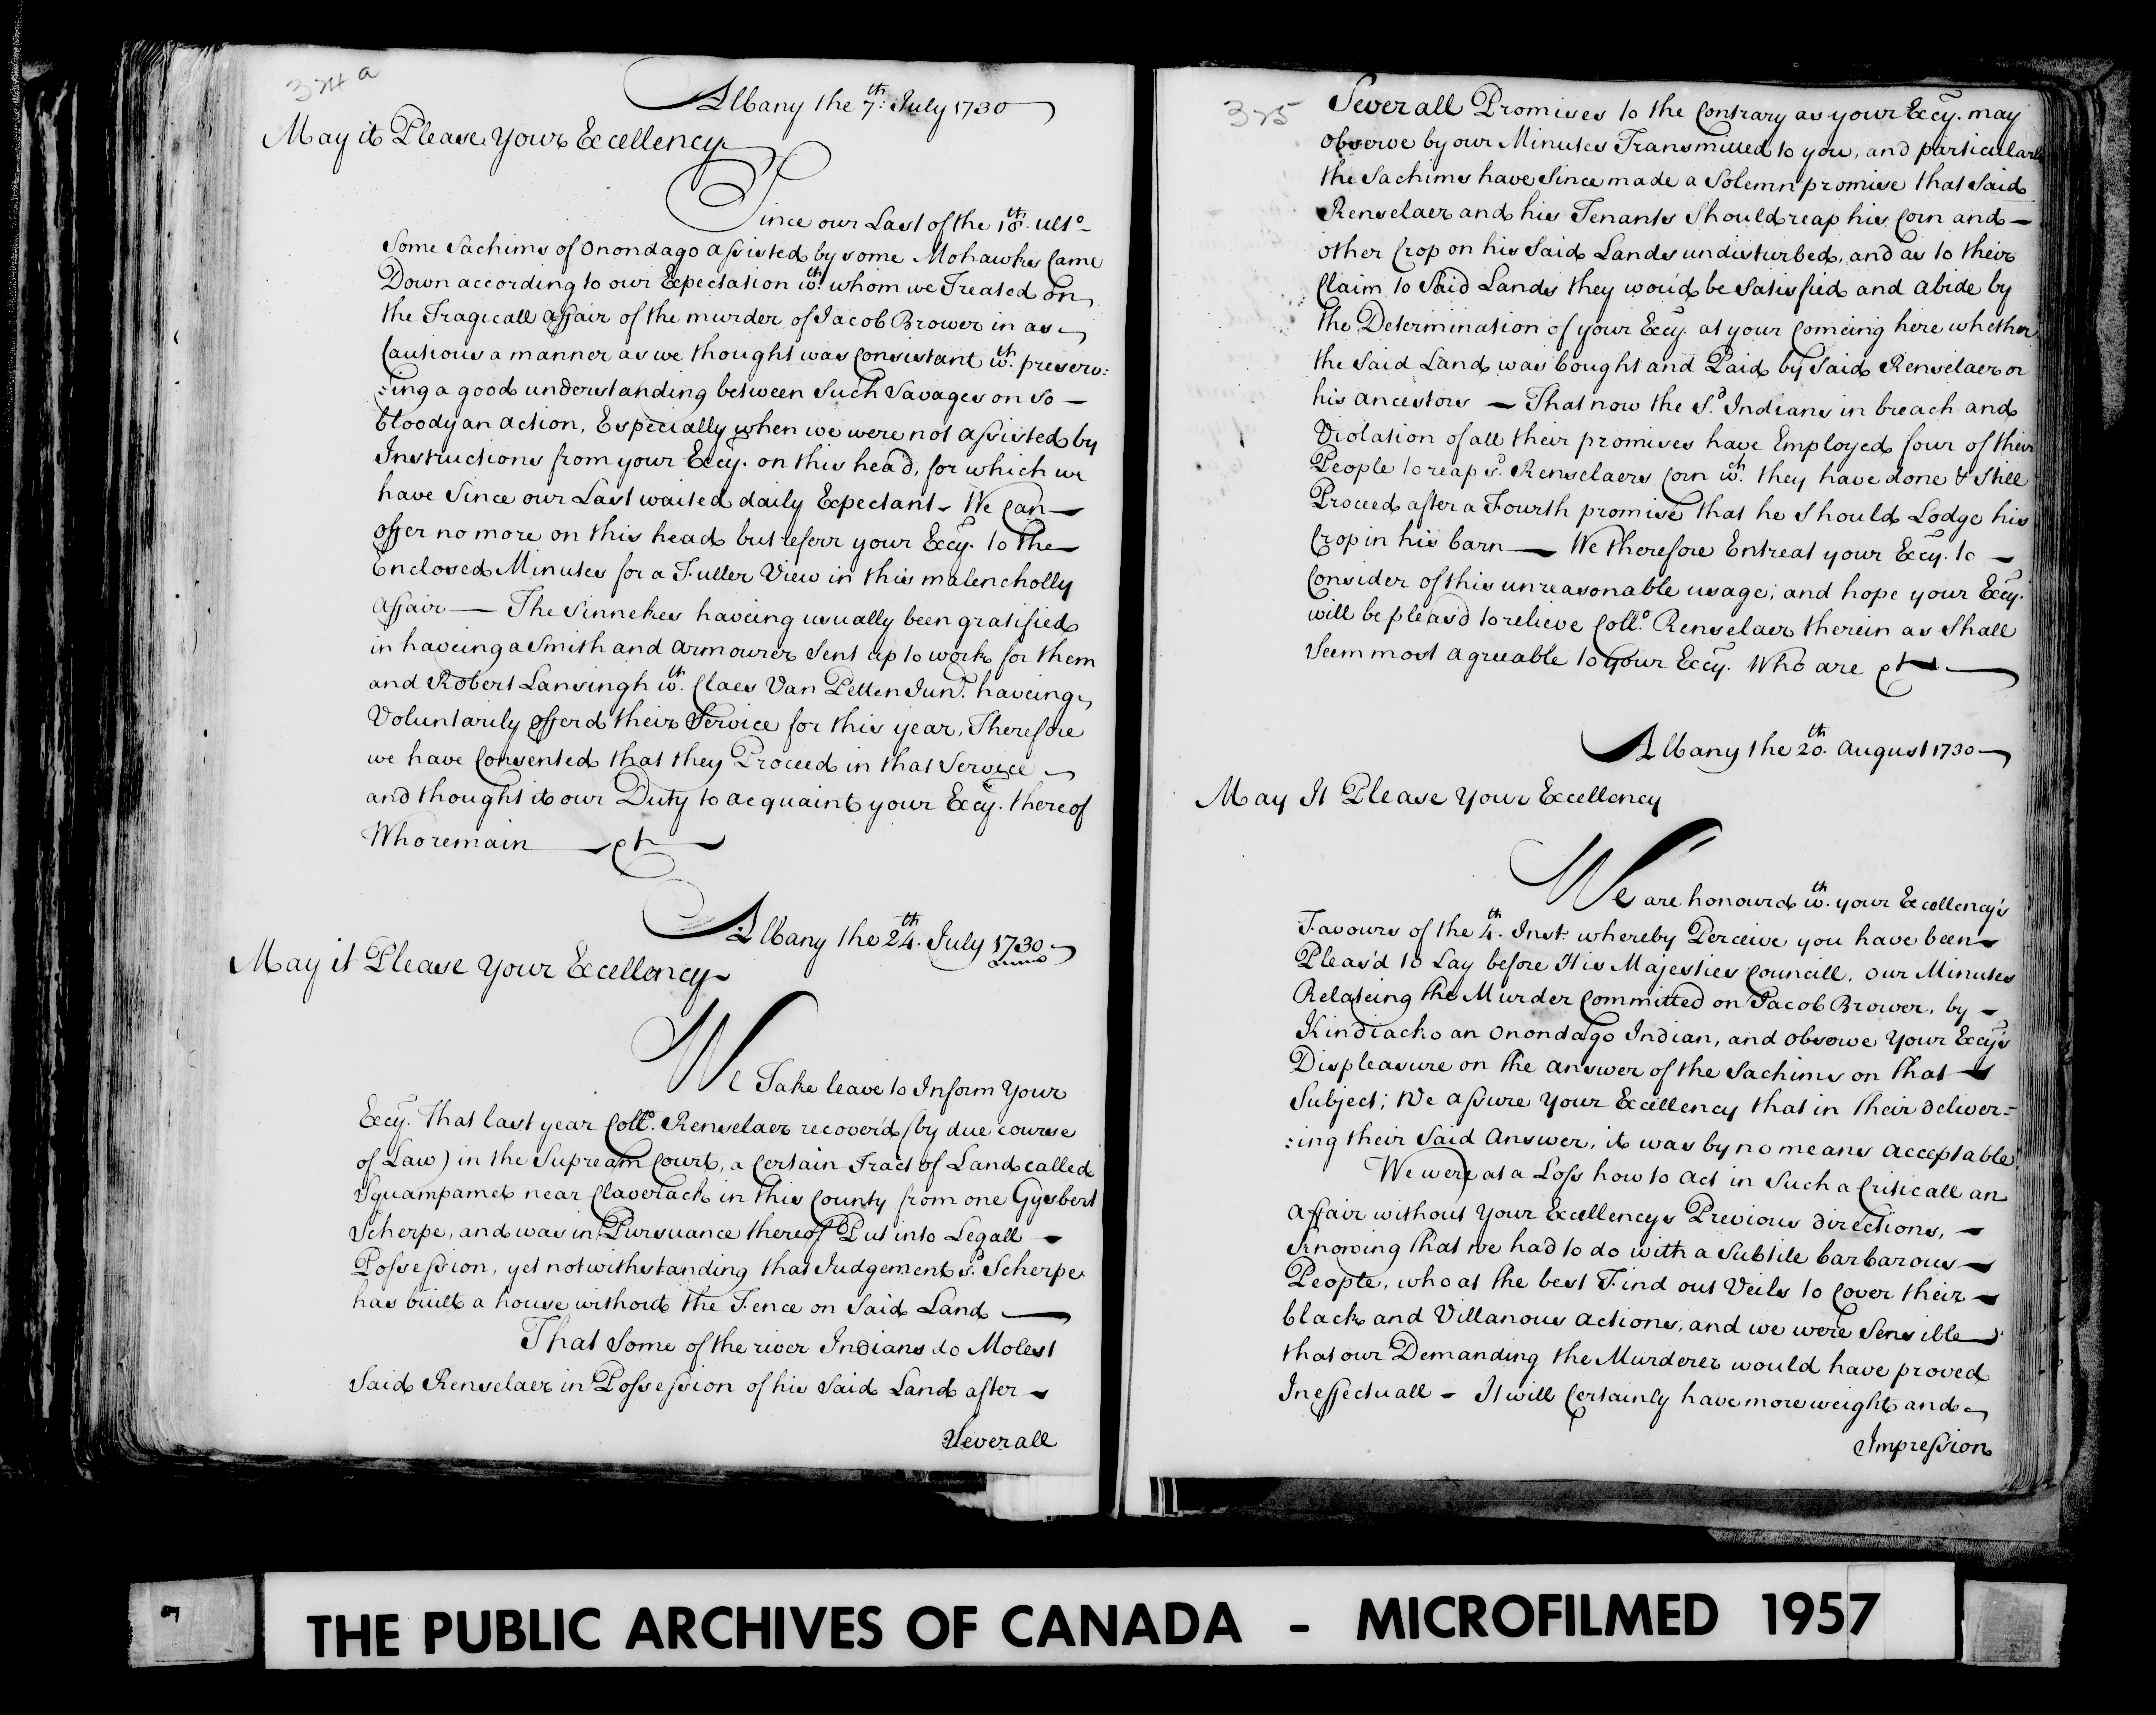 324a
Albany the 7th. July 1730
May it Please Your Excellency
Since our Last of the 18th. ulto
Some Sachims of Onondago assisted by some Mohawks Came
Down according to our Expectation wth. whom we Treated on
the Tragicall affair of the murder of Jacob Brower in as
Cautious a manner as we thought was Consistant wth. preserv:
:ing a good understanding between Such Savages on So
bloody an action, Especially when we were not assisted by
Instructions from your Excy. on this head, for which we
have Since our Last waited daily Expectant - We Can
offer no more on this head but referr your Excy. to the
Enclosed Minutes for a Fuller View in this malencholly
affair — The Sinnekes haveing usually been gratified
in haveing a Smith and armourer Sent up to work for them
and Robert Lansingh wth. Claes Van Petten Junr. haveing
Voluntarily offerd their Service for this year, Therefore
we have Consented that they Proceed in that Service
and thought it our Duty to acquaint your Excy. thereof
Who remain — &c
Albany the 24th. July 1730
May it Please Your Excellency
We Take leave to Inform Your
Excy. that last year Collo. Renselaer recover'd (by due course
of Law) in the Supream Court, a Certain Tract of Land called
Squampamet near Claverack in this County from one Gysbert
Scherpe, and was in Pursuance thereof Put into Legall
Possession, yet notwithstanding that Judgement sd. Scherpe
has built a house without the Fence on Said Land —
That Some of the river Indians do Molest
Said Renselaer in Possession of his Said Land after
Severall
325
Severall Promises to the Contrary as your Excy. may
observe by our Minutes Transmitted to you, and particularly
the Sachims have Since made a Solemn promise that Said
Renselaer and his Tenants Should reap his Corn and
other Crop on his Said Lands undisturbed, and as to their
Claim to Said Lands they wou'd be Satisfied and abide by
the Determination of your Excy. at your Comeing here whether
the Said Land was bought and Paid by Said Renselaer or
his ancestors — That now the Sd. Indians in breach and
Violation of all their promises have Employed four of their
People to reap sd. Renselaers Corn wth. they have done & Still
Proceed after a Fourth promise that he Should Lodge his
Crop in his barn — We therefore Entreat your Excy. to
Consider of this unreasonable usage; and hope your Excy.
will be pleas'd to relieve Collo. Renselaer therein as Shall
Seem most agreeable to your Excy. Who are &c
Albany the 20th. August 1730
May It Please Your Excellency
We are honourd wth. your Excellency's
Favours of the 4th. Inst. whereby Perceive you have been
Pleas'd to Lay before His Majesties Councill, our Minutes
Relateing the Murder Committed on Jacob Brower, by
Kindiacko an Onondago Indian, and observe Your Excy's
Displeasure on the answer of the Sachims on that
Subject; We assure Your Excellency that in their deliver-
:ing their Said Answer, it was by no means acceptable.
We were at a Loss how to act in Such a Criticall an
affair without Your Excellencys Previous directions,
knowing that we had to do with a Subtile barbarous
People, who at the best Find out Veils to Cover their
black and Villanous actions, and we were Sensible
that our Demanding the Murderer would have proved
Ineffectuall - It will Certainly have more weight and
Impression
THE PUBLIC ARCHIVES OF CANADA - MICROFILMED 1957